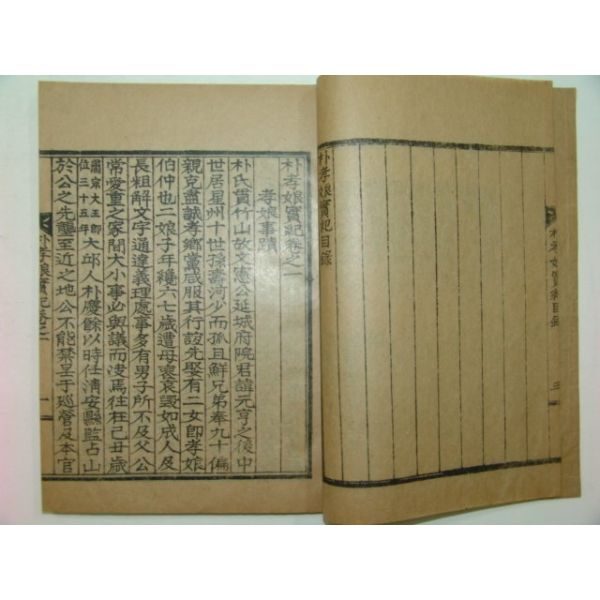 朴孝娘實紀目錄
朴孝娘實紀目錄
三
朴孝娘實紀卷之一
孝娘事蹟
朴氏貫竹山故文憲公延城府院君諱元亨之後中
世居星州十世孫壽河少而孤且鮮兄弟奉九十偏
親克盡誠孝鄉黨咸服其行誼先娶有二女卽孝娘
伯仲也二娘子年纔六七歲遭母喪哀毀如成人及
長粗解文字通達義理處事多有男子所不及父公
常愛重之家間大小事必與議而後焉往在己丑歲
肅宗大王卽位三十五年大邱人朴慶餘以時任淸安縣監占山
於公之先壟至近之地公不能禁呈于巡營及本官
朴孝娘實紀卷之一
一